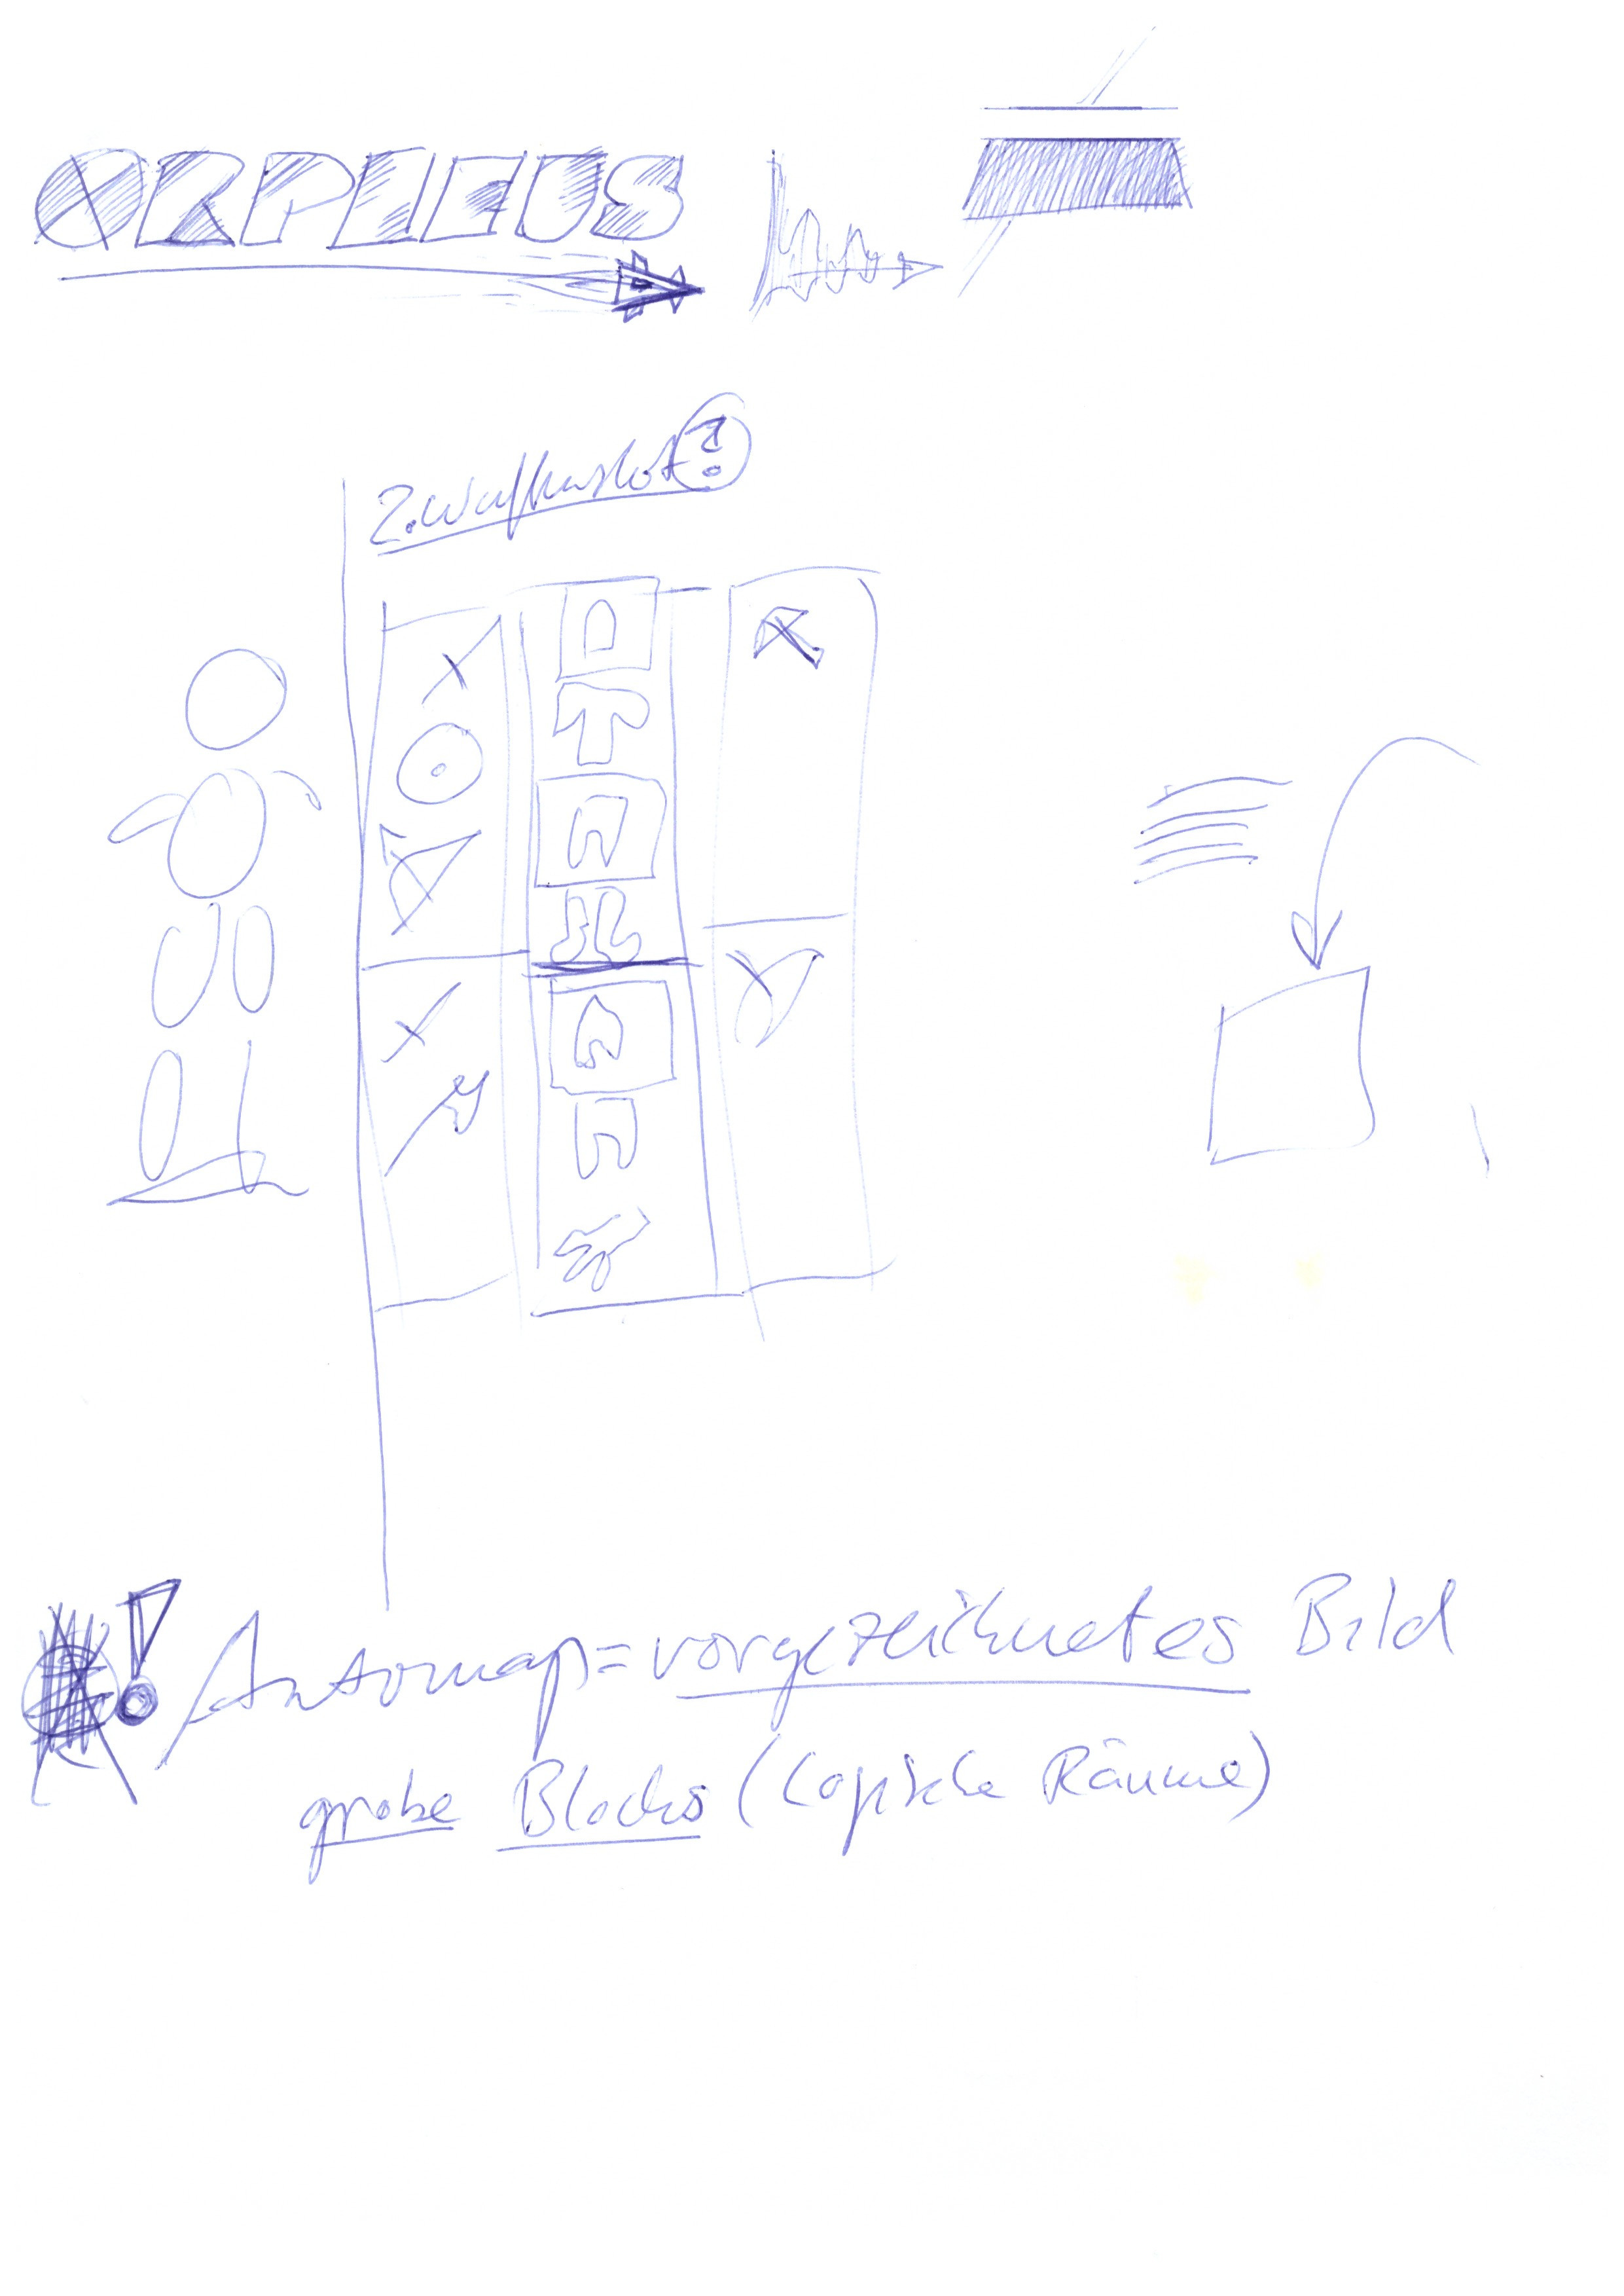 ORPHEUS
2. Waffenslot?
! Automap = vorgezeichnetes Bild
grobe Blocks (logische Räume)